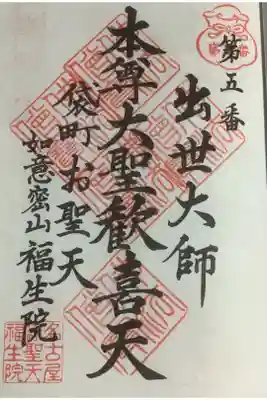 第五番
出世大師
本尊大聖歓喜天
袋町お聖天
如意密山 福生院
名古屋
聖天
福生院